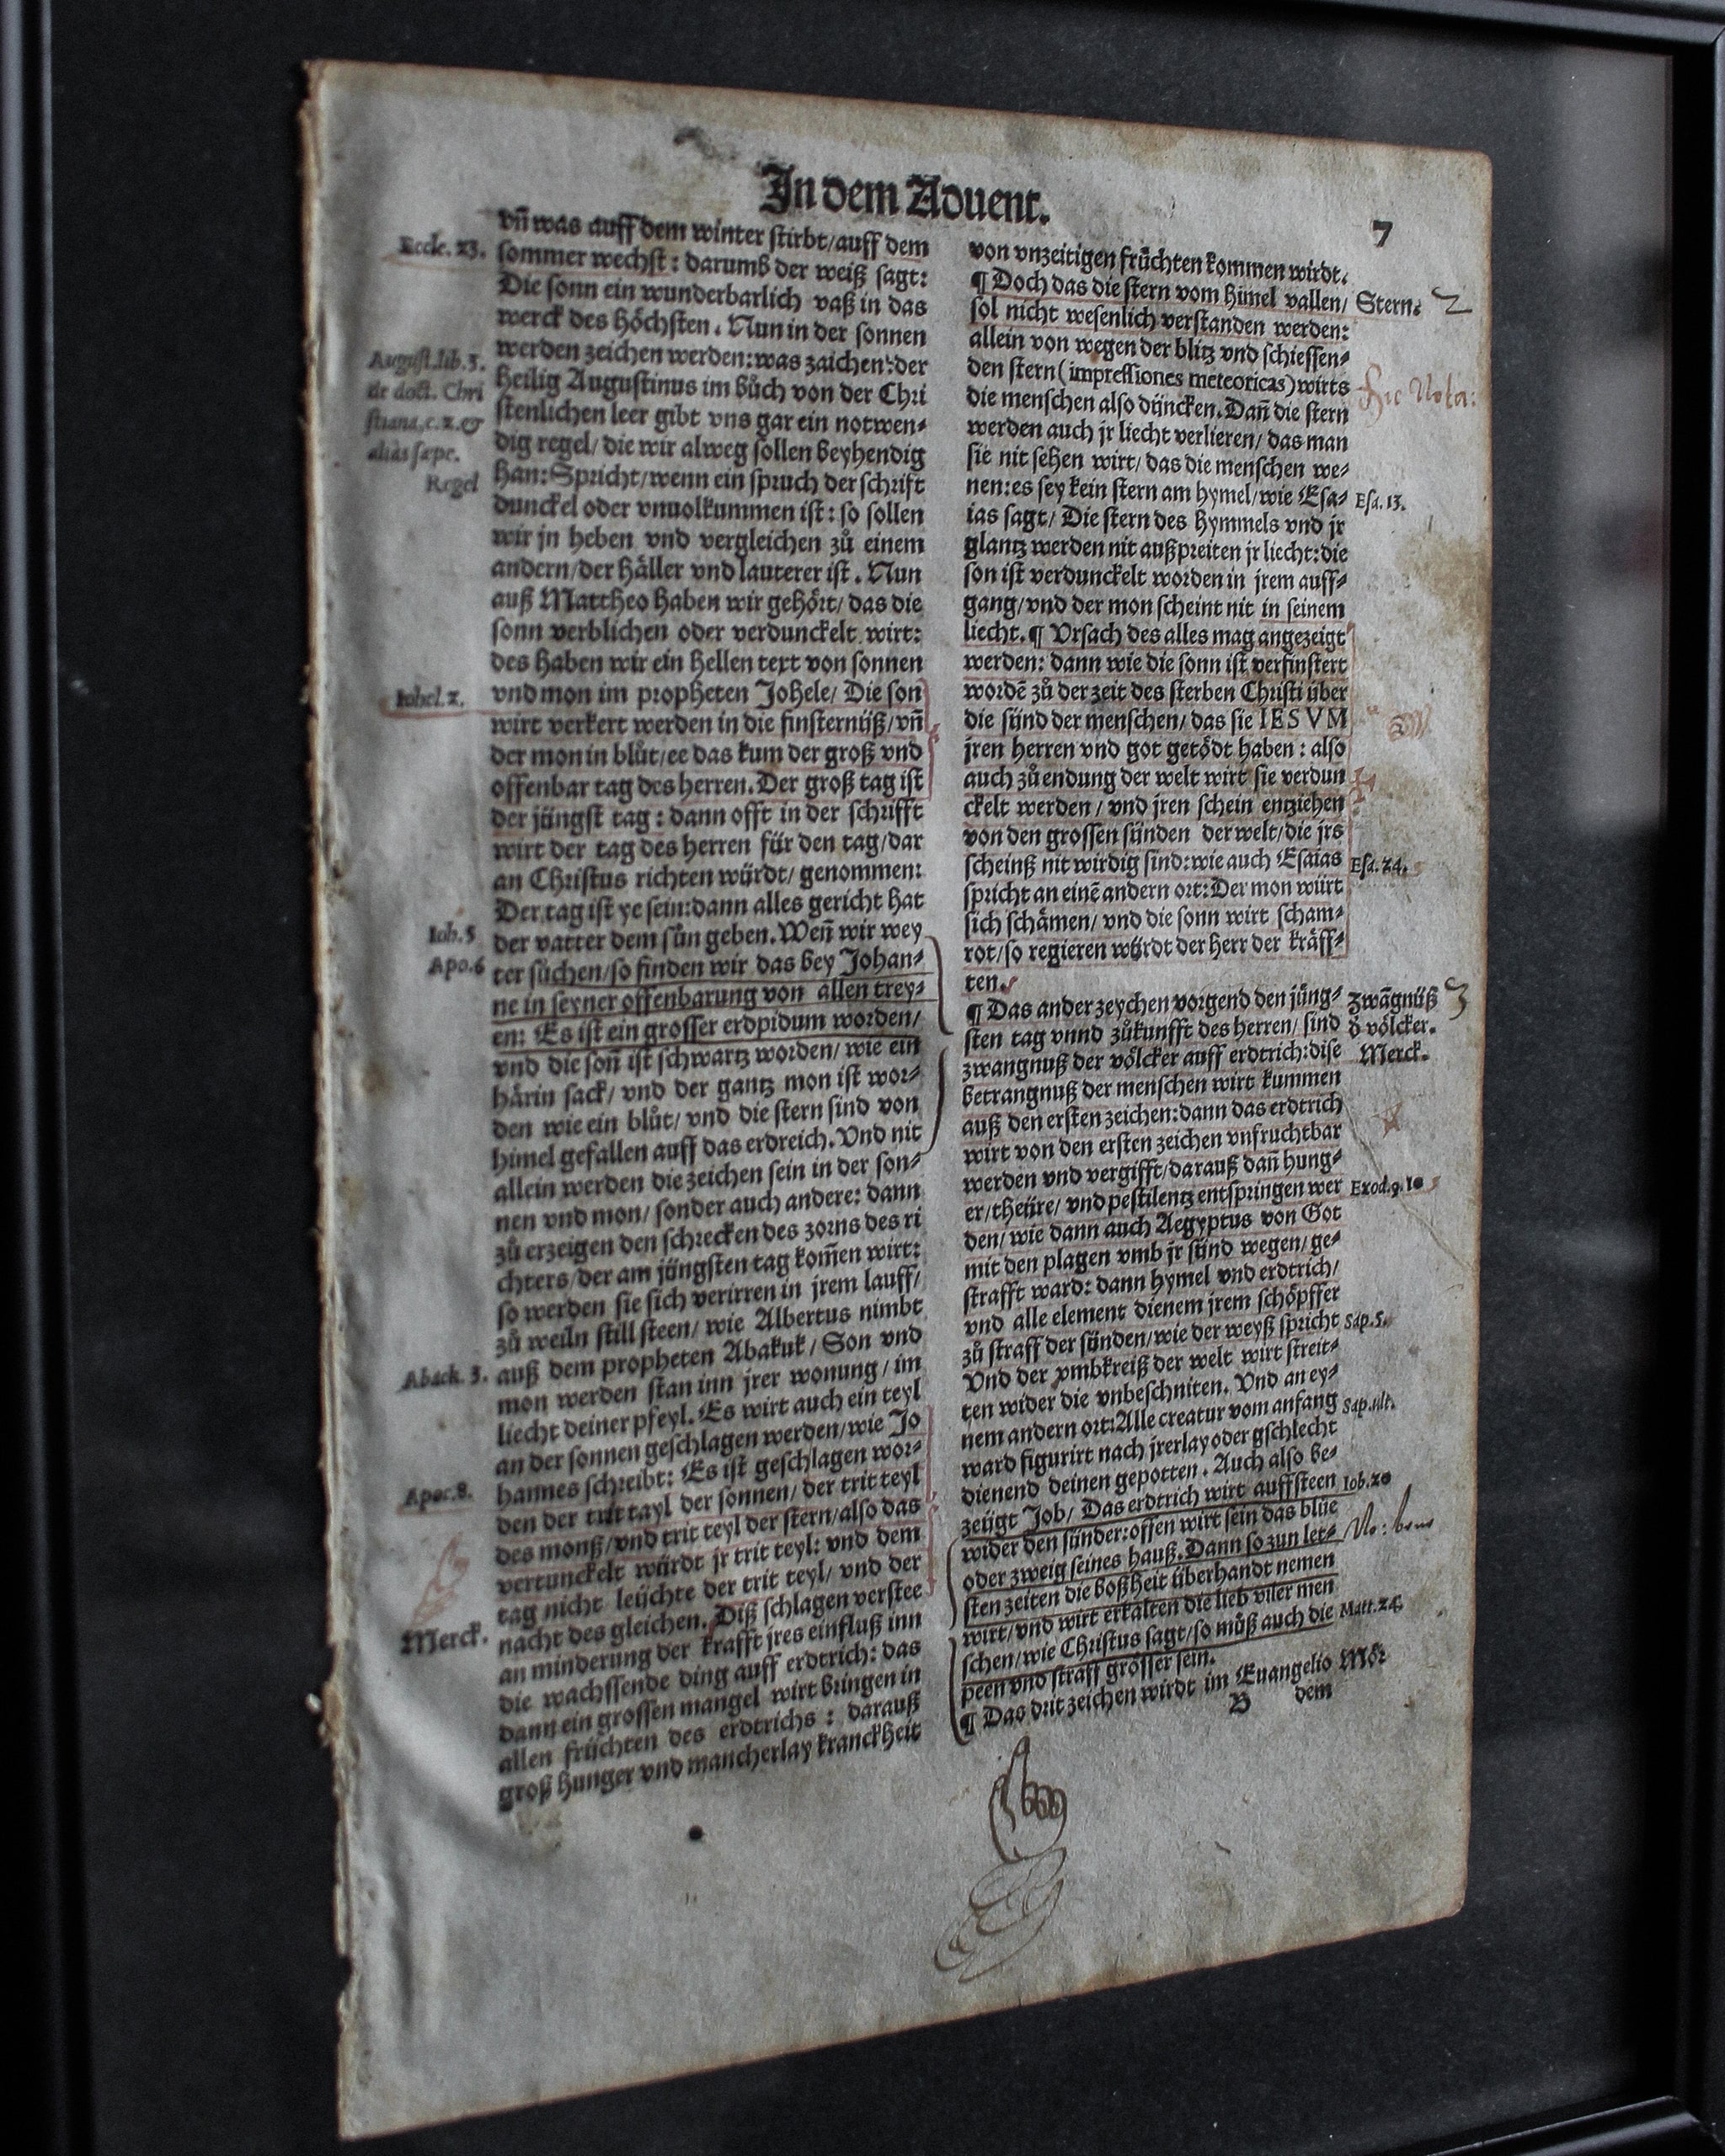 In dem Aduent.
7
vñ was auff dem winter stirbt/auff dem
Eccle. 23.
sommer wechst: darumb der weiß sagt:
Die sonn ein wunderbarlich vaß in das
werck des höchsten. Nun in der sonnen
werden zeichen werden: was zaichen? der
August. lib. 3.
heilig Augustinus im bůch von der Chri
de doct. Chri
stenlichen leer gibt vns gar ein notwen⸗
stiana, c. 2. &
dig regel/ die wir alweg sollen beyhendig
alias sæpe.
han: Spricht/wenn ein spruch der schrift
Regel
dunckel oder vnuolkummen ist: so sollen
wir jn heben vnd vergleichen zů einem
andern/der häller vnd lauterer ist. Nun
auß Mattheo haben wir gehört/ das die
sonn verblichen oder verdunckelt wirt:
des haben wir ein hellen text von sonnen
vnd mon im propheten Johele/ Die son
Iohel. 2.
wirt verkert werden in die finsternüß/vñ
der mon in blůt/ee das kum der groß vnd
offenbar tag des herren. Der groß tag ist
der jüngst tag: dann offt in der schrifft
wirt der tag des herren für den tag/dar
an Christus richten würdt/ genommen:
Der tag ist ye sein: dann alles gericht hat
Ioh. 5
der vatter dem sůn geben. Weñ wir wey
Apo. 6
ter sůchen/so finden wir das bey Johan⸗
ne in seyner offenbarung von allen trey⸗
en: Es ist ein grosser erdpidum worden/
vnd die soñ ist schwartz worden/ wie ein
härin sack/ vnd der gantz mon ist wor⸗
den wie ein blůt/ vnd die stern sind von
himel gefallen auff das erdreich. Vnd nit
allein werden die zeichen sein in der son⸗
nen vnd mon/ sonder auch andere: dann
zů erzeigen den schrecken des zorns des ri
chters/der am jüngsten tag kom̄en wirt:
so werden sie sich verirren in jrem lauff/
zů weiln still steen/ wie Albertus nimbt
auß dem propheten Abakuk/ Son vnd
Aback. 3.
mon werden stan inn jrer wonung/ im
liecht deiner pfeyl. Es wirt auch ein teyl
an der sonnen geschlagen werden/wie Jo
hannes schreibt: Es ist geschlagen wor⸗
Apoc. 8.
den der trit tayl der sonnen/ der trit teyl
des monß/vnd trit teyl der stern/also das
vertunckelt würdt jr trit teyl: vnd dem
tag nicht leüchte der trit teyl/ vnd der
nacht des gleichen. Diß schlagen verstee
Merck.
an minderung der krafft jres einfluß inn
die wachssende ding auff erdtrich: das
dann ein grossen mangel wirt bringen in
allen früchten des erdtrichs: darauß
groß hunger vnd mancherlay kranckheit
von vnzeitigen früchten kommen wirdt.
¶ Doch das die stern vom himel vallen/
Stern. 2
sol nicht wesenlich verstanden werden:
allein von wegen der blitz vnd schiessen⸗
den stern (impressiones meteoricas) wirts
hic Nota:
die menschen also düncken. Dañ die stern
werden auch jr liecht verlieren/ das man
sie nit sehen wirt/ das die menschen we⸗
nen: es sey kein stern am hymel/wie Esa⸗
Esa. 13.
ias sagt/ Die stern des hymmels vnd jr
glantz werden nit außpreiten jr liecht: die
son ist verdunckelt worden in jrem auff⸗
gang/vnd der mon scheint nit in seinem
liecht. ¶ Vrsach des alles mag angezeigt
werden: dann wie die sonn ist verfinstert
wordē zů der zeit des sterben Christi über
die sünd der menschen/ das sie IESVM
jren herren vnd got getödt haben: also
auch zů endung der welt wirt sie verdun
ckelt werden/ vnd jren schein entziehen
von den grossen sünden der welt/die jrs
scheinß nit wirdig sind: wie auch Esaias
Esa. 24.
spricht an einē andern ort: Der mon würt
sich schämen/ vnd die sonn wirt scham⸗
rot/so regieren würdt der herr der kräff⸗
ten.
¶ Das ander zeychen vorgend den jüng⸗
Zwāgnüß 3
sten tag vnnd zůkunfft des herren/ sind
d völcker.
zwangnuß der völcker auff erdtrich: dise
Merck.
betrangnuß der menschen wirt kummen
auß den ersten zeichen: dann das erdtrich
wirt von den ersten zeichen vnfruchtbar
werden vnd vergifft/darauß dañ hung⸗
er/theüre/ vnd pestilentz entspringen wer
Exod. 9. 10
den/ wie dann auch Aegyptus von Got
mit den plagen vmb jr sünd wegen/ ge⸗
strafft ward: dann hymel vnd erdtrich/
vnd alle element dienem jrem schöpffer
zů straff der sünden/wie der weyß spricht
Sap. 5.
Vnd der vmbkreiß der welt wirt streit⸗
ten wider die vnbeschniten. Vnd an ey⸗
nem andern ort: Alle creatur vom anfang
Sap. ult.
ward figurirt nach jrerlay oder gschlecht
dienend deinen gepotten. Auch also be⸗
zeügt Job/ Das erdtrich wirt auffsteen
Iob. 20
wider den sünder: offen wirt sein das blüe
oder zweig seines hauß. Dann so zun let⸗
sten zeiten die boßheit überhandt nemen
wirt/vnd wirt erkalten die lieb viler men
schen/wie Christus sagt/so můß auch die
Matt. 24.
peen vnd straff grösser sein.
¶ Das drit zeichen wirdt im Euangelio Mör
B dem